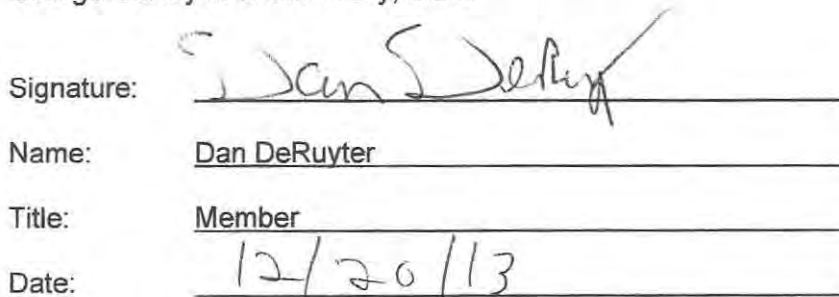 Signature: Dan DeRuy
Name: Dan DeRuyter
Title: Member
Date: 12/20/13